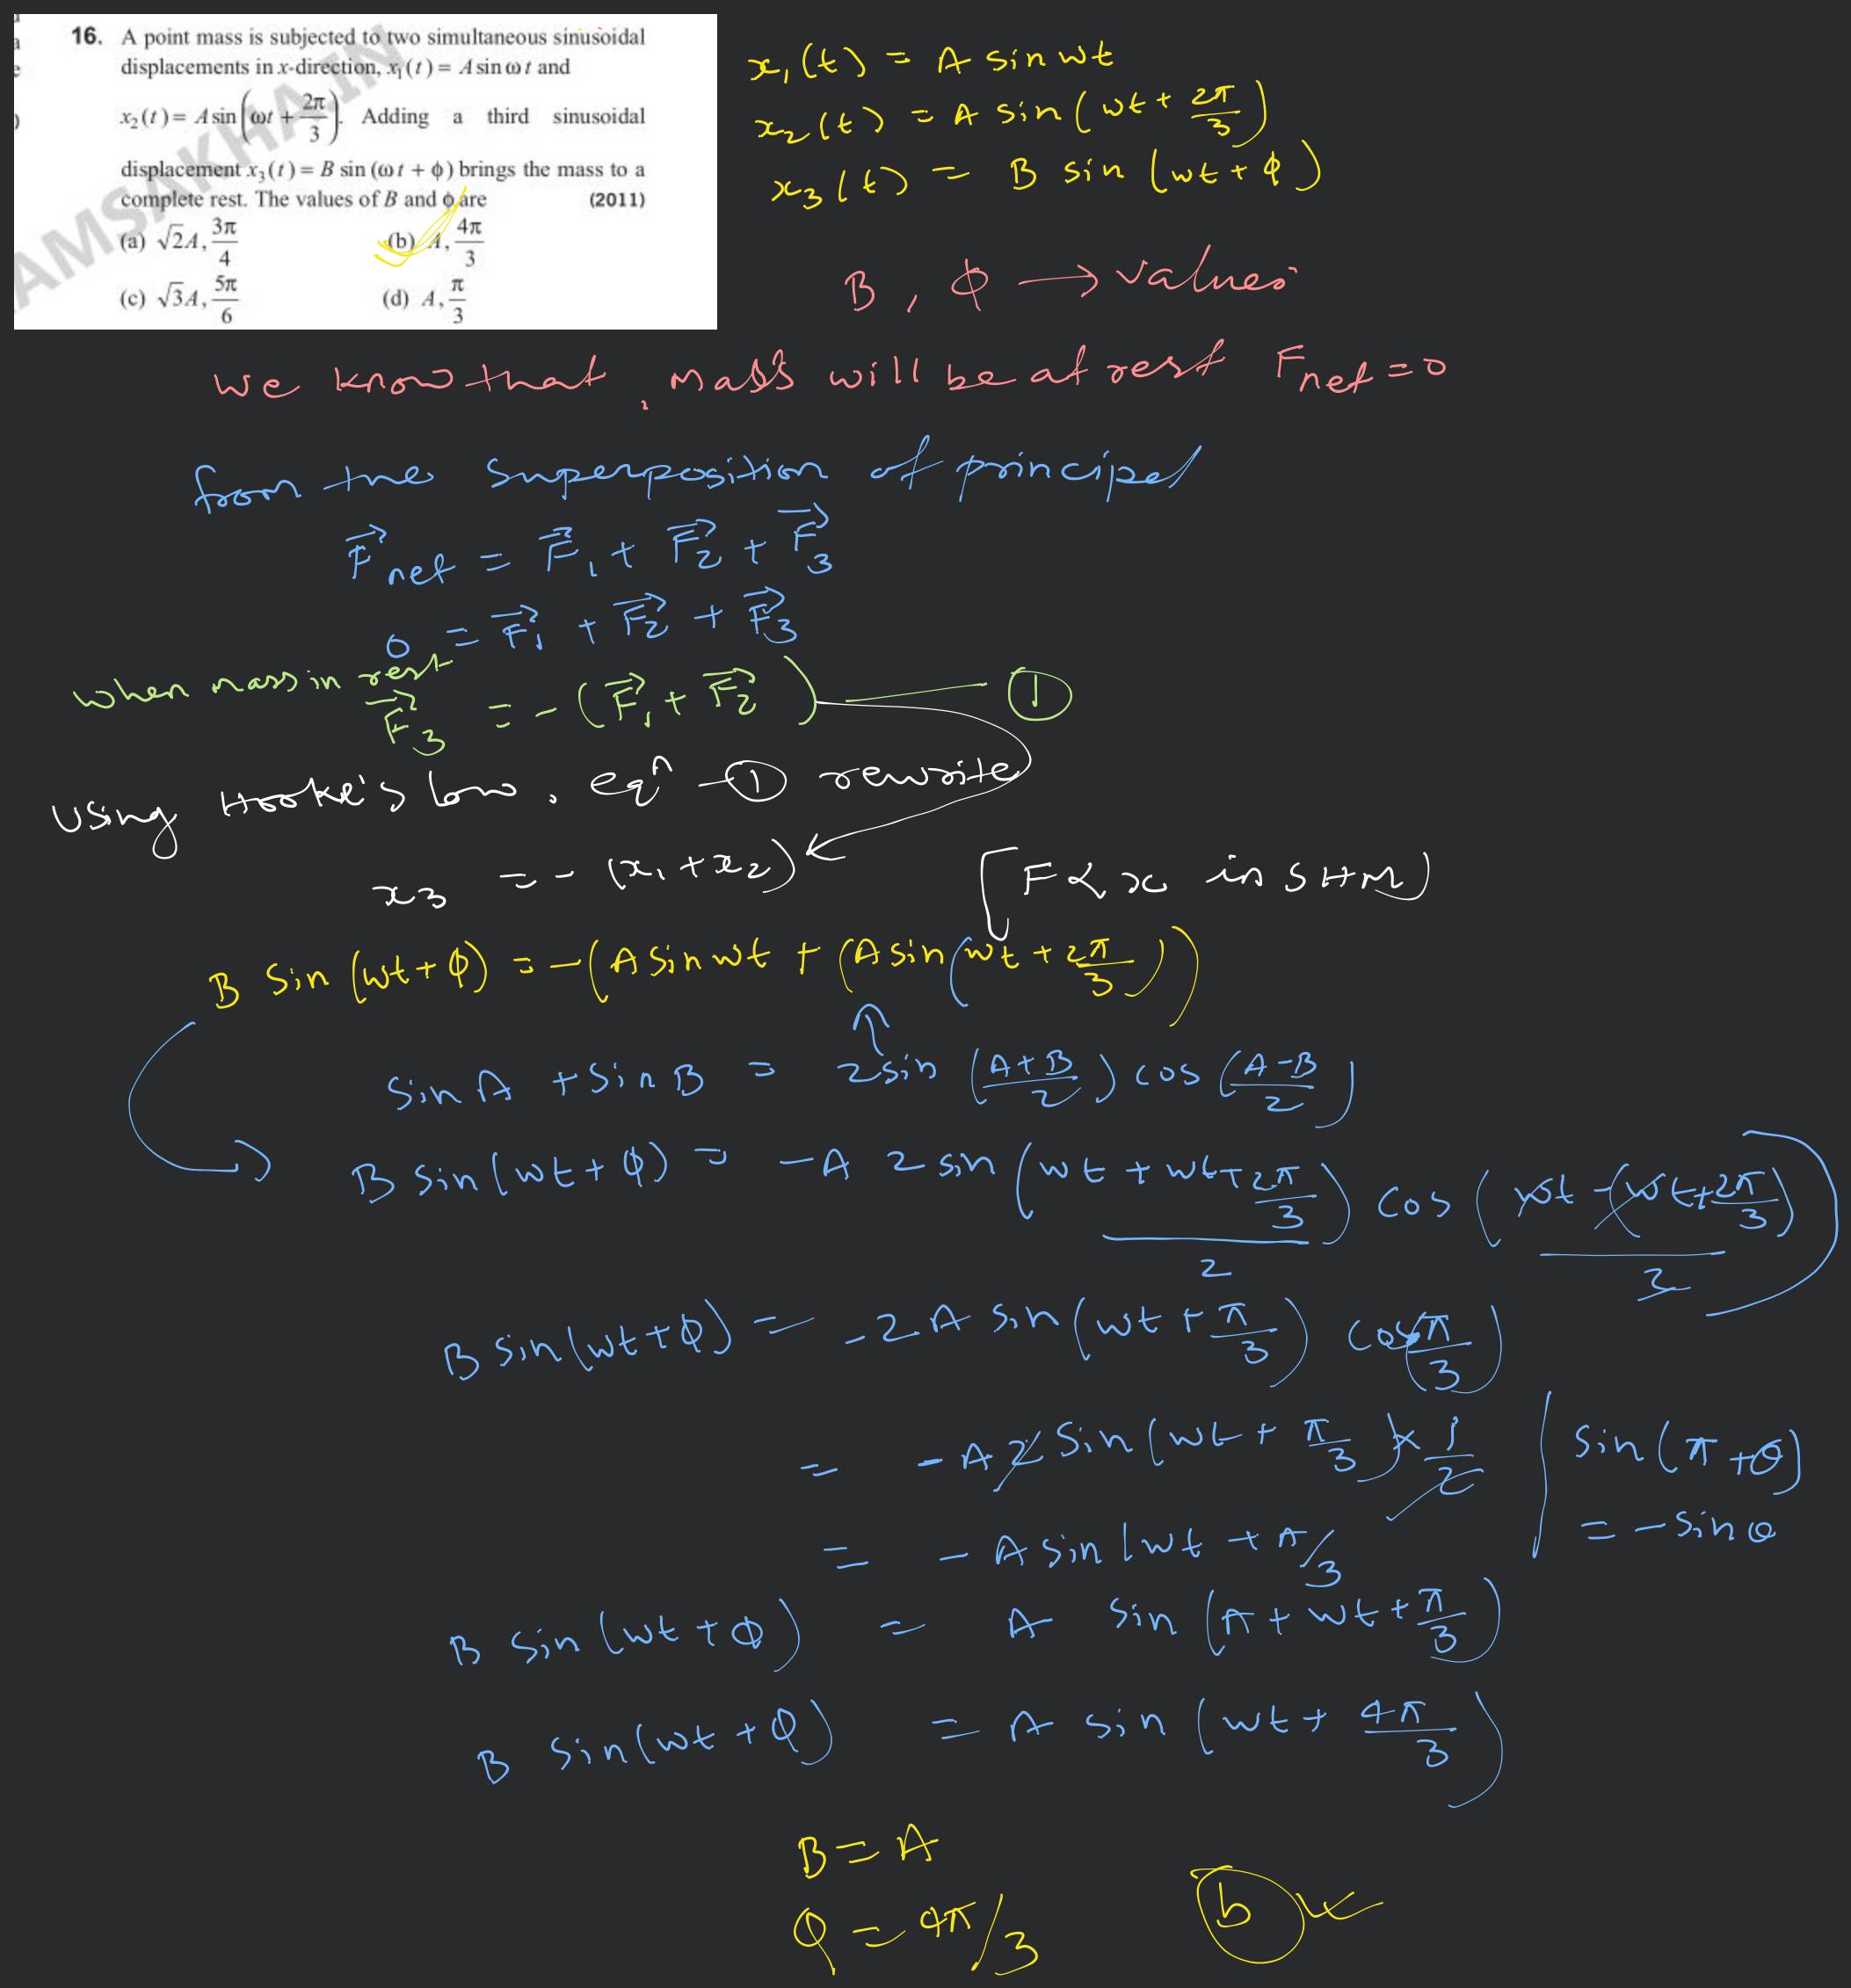 16. A point mass is subjected to two simultaneous sinusoidal
displacements in x-direction, x₁(t) = A sin ωt and
x₂(t) = A sin(ωt + 2π/3). Adding a third sinusoidal
displacement x₃(t) = B sin (ωt + ϕ) brings the mass to a
complete rest. The values of B and ϕ are (2011)
(a) √2A, 3π/4 (b) A, 4π/3
(c) √3A, 5π/6 (d) A, π/3
AMSAKHA.IN
x₁(t) = A sin wt
x₂(t) = A sin(wt + 2π/3)
x₃(t) = B sin(wt + ϕ)
B, ϕ → values
we know that, mass will be at rest Fnet = 0
from the superposition of principel
F⃗net = F⃗₁ + F⃗₂ + F⃗₃
0 = F⃗₁ + F⃗₂ + F⃗₃
when mass in rest
F⃗₃ = -(F⃗₁ + F⃗₂) — ①
Using Hooke's low, eqⁿ - ① rewrite
x₃ = -(x₁ + x₂) [F ∝ x in SHM)
B sin (wt + ϕ) = -(A sin wt + (A sin(wt + 2π/3))
sin A + sin B = 2 sin (A+B/2) cos (A-B/2)
B sin(wt + ϕ) = -A 2 sin (wt + wt + 2π/3 / 2) cos (wt - (wt + 2π/3) / 2)
B sin(wt + ϕ) = -2A sin(wt + π/3) cos(π/3)
= -A 2 sin(wt + π/3) × 1/2
sin(π + θ)
= -sin θ
= -A sin(wt + π/3
B sin(wt + ϕ) = A sin (π + wt + π/3)
B sin(wt + ϕ) = A sin (wt + 4π/3)
B = A
ϕ = 4π/3
b